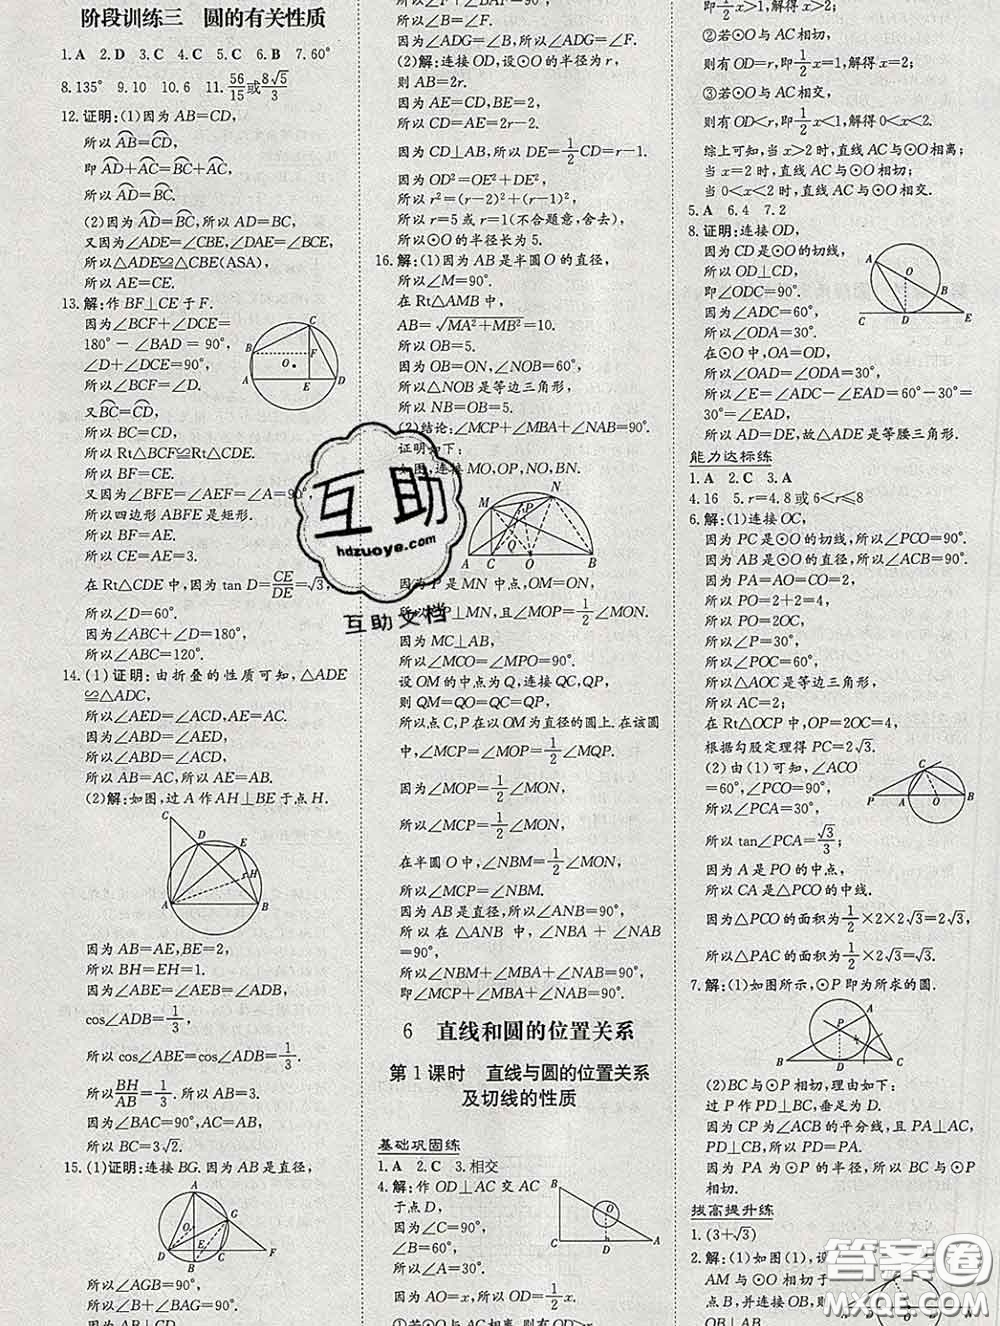 阶段训练三 圆的有关性质
1.A 2.D 3.C 4.C 5.C 6.B 7.60°
8.135° 9.10 10.6 11.56/15或8√5/3
12.证明:(1)因为AB=CD,
所以AB=CD,
即AD+AC=BC+AC,
所以AD=BC.
(2)因为AD=BC,所以AD=BC,
又因为∠ADE=∠CBE,∠DAE=∠BCE,
所以△ADE≌△CBE(ASA),
所以AE=CE.
13.解:作BF⊥CE于F.
因为∠BCF+∠DCE=
180°-∠BAD=90°,
∠D+∠DCE=90°,
所以∠BCF=∠D.
又BC=CD,
所以BC=CD,
所以Rt△BCF≌Rt△CDE.
所以BF=CE.
又∠BFE=∠AEF=∠A=90°,
所以四边形ABFE是矩形.
所以BF=AE.
所以CE=AE=3.
在Rt△CDE中,因为tan D=CE/DE=√3,
所以∠D=60°.
因为∠ABC+∠D=180°,
所以∠ABC=120°.
14.(1)证明:由折叠的性质可知,△ADE
≌△ADC,
所以∠AED=∠ACD,AE=AC.
因为∠ABD=∠AED,
所以∠ABD=∠ACD,
所以AB=AC,所以AE=AB.
(2)解:如图,过A作AH⊥BE于点H.
C
D
E
H
A
B
因为AB=AE,BE=2,
所以BH=EH=1.
因为∠ABE=∠AEB=∠ADB,
cos∠ADB=1/3,
所以cos∠ABE=cos∠ADB=1/3.
所以BH/AB=1/3.
因为∠BAC=90°,AC=AB,
所以BC=3√2.
15.(1)证明:连接BG.因为AB是直径,
A
O
G
D
E
C
F
B
所以∠AGB=90°,
因为∠ADG=∠B,所以∠ADG=∠F.
(2)解:连接OD,设⊙O的半径为r,
则AB=2r.
因为AE=CD,BE=2,
所以AE=CD=2r-2,
因为CD⊥AB,所以DE=1/2CD=r-1.
因为OD²=OE²+DE²,
所以r²=(r-2)²+(r-1)²,
所以r=5或r=1(不合题意,舍去),
所以⊙O的半径长为5.
16.解:(1)因为AB是半圆O的直径,
所以∠M=90°.
在Rt△AMB中,
AB=√MA²+MB²=10.
所以OB=5.
因为OB=ON,∠NOB=60°,
所以△NOB是等边三角形,
所以NB=OB=5.
(2)结论:∠MCP+∠MBA+∠NBO=90°.
证明如下:
如图,连接MO,OP,NO,BN.
M
P
N
Q
A
C
O
B
因为P是MN中点,OM=ON,
所以OP⊥MN,且∠MOP=1/2∠MON,
因为MC⊥AB,
所以∠MCO=∠MPO=90°.
设OM的中点为Q,连接QC,QP,
则QM=QO=QC=QP,
所以点C,P在以OM为直径的圆上.在该圆
中,∠MCP=∠MOP=1/2∠MQP.
因为∠MOP=1/2∠MON,
所以∠MCP=1/2∠MON,
在半圆O中,∠NBM=1/2∠MON,
所以∠MCP=∠NBM.
因为AB是直径,所以∠ANB=90°,
所以在△ANB中,∠NBA+∠NAB
=90°,
所以∠NBM+∠MBA+∠NAB=90°,
即∠MCP+∠MBA+∠NAB=90°.
6 直线和圆的位置关系
第1课时 直线与圆的位置关系
及切线的性质
基础巩固练
1.A 2.C 3.相交
4.解:作OD⊥AC交AC
于点D,
因为∠C=90°,
∠B=60°,
所以∠A=30°,
因为AO=x,所以OD=1/2x.
B
O
C
D
A
①若⊙O与AC相离,
即1/2x>1,解得x>2;
②若⊙O与AC相切,
则有OD=r,即1/2x=1,解得x=2;
③若⊙O与AC相交,
则有OD<r,即1/2x<1,解得x<2.
综上可知,当x>2时,直线AC与⊙O相离;
当x=2时,直线AC与⊙O相切;
当0<x<2时,直线AC与⊙O相交.
5.A 6.4 7.2
8.证明:连接OD,
因为CD是⊙O的切线,
所以OD⊥CD,
因为∠ADC=60°,
所以∠ODA=30°.
在⊙O中,OA=OD,
所以∠OAD=∠ODA=30°,
所以∠E=∠ADC-∠EAD=60°-30°=
30°=∠EAD,
所以AD=DE,故△ADE是等腰三角形.
A
O
B
C
D
E
能力达标练
1.A 2.C 3.A
4.16 5.r=4.8或6<r≤8
6.解:(1)连接OC,
因为PC是⊙O的切线,所以∠PCO=90°.
因为AB是⊙O的直径,所以∠ACB=90°.
因为PA=AO=AC=2,
所以PO=2+2=4,
所以PO=2OC,
所以∠P=30°,
所以∠POC=60°,
所以△AOC是等边三角形,
所以AC=2;
在Rt△OCP中,OP=2OC=4,
根据勾股定理得PC=2√3.
(2)由(1)可知,∠ACO
=60°,∠PCO=90°,
所以∠PCA=30°,
所以tan∠PCA=√3/3,
因为A是PO的中点,
所以CA是△PCO的中线.
因为△PCO的面积为1/2×2×2√3=2√3,
所以△PAC的面积为1/2×2√3=√3.
P
A
O
B
7.解:(1)如图所示,⊙P即为所求的圆.
A
P
B
C
(2)BC与⊙P相切,理由如下:
过P作PD⊥BC,垂足为D.
因为CP为∠ACB的平分线,且PA⊥CA,
PD⊥CB,所以PD=PA.
因为PA为⊙P的半径,所以BC与⊙P
相切.
拔高提升练
1.(3+√3)
2.解:(1)如图(1),设
AM与⊙O相切于
点B,并连接OB,则
互助
hdzuoye.com
互助文档
答案圈
MXQE.COM